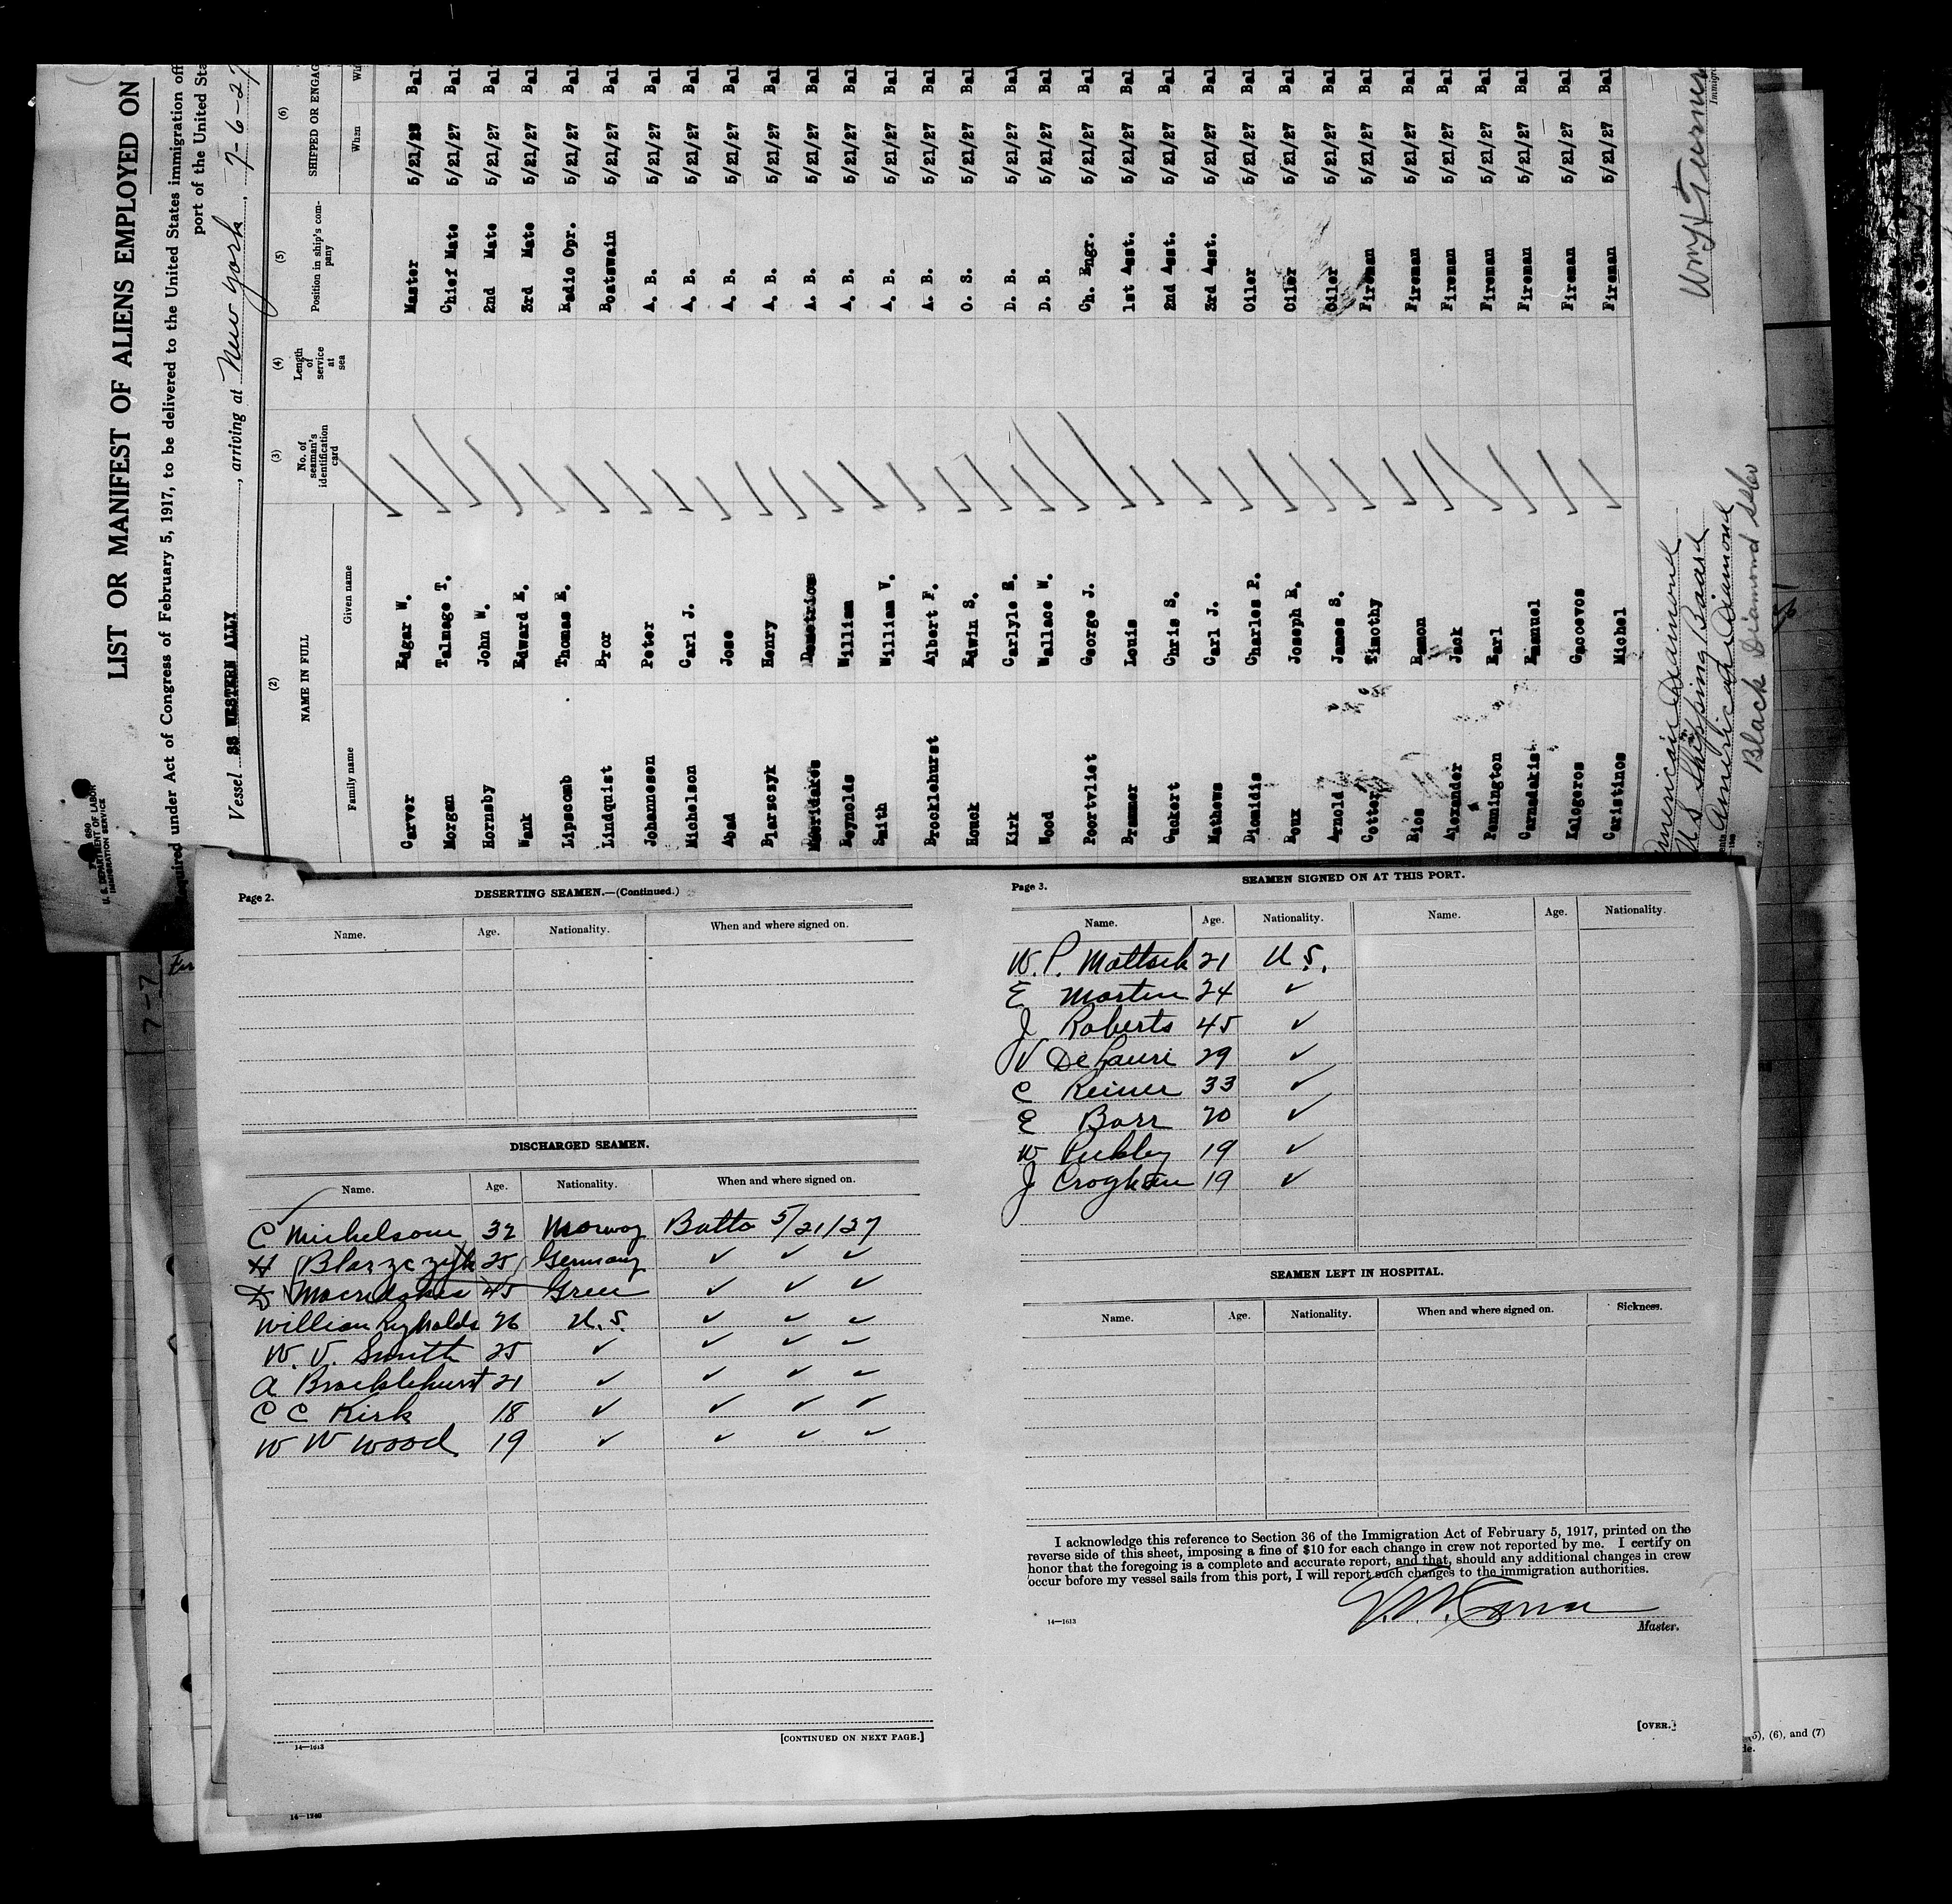 LIST OR MANIFEST OF ALIENS EMPLOYED ON
Required under Act of Congress of February 5, 1917, to be delivered to the United States immigration
port of the United
U. S. DEPARTMENT OF LABOR
IMMIGRATION SERVICE
Vessel SS WESTERN ALLY, arriving at New York, 7-6-27
(2) (3) (4) (5) (6)
NAME IN FULL No. of seaman's identification card Length of service at sea Position in ship's company SHIPPED OR
Family name Given name When
Carver Edgar W. Master 5/21/28 Bal
Morgan Talmage T. Chief Mate 5/21/27 Bal
Hornsby John W. 2nd Mate 5/21/27 Bal
Wank Edward E. 3rd Mate 5/21/27 Bal
Lipscomb Thomas E. Radio Opr. 5/21/27 Bal
Lindquist Bror Boatswain 5/21/27 Bal
Johannesen Peter A. B. 5/21/27 Bal
Michelson Carl J. A. B. 5/21/27 Bal
Abad Jose A. B. 5/21/27 Bal
Blarzczyk Henry A. B. 5/21/27 Bal
Demetrios A. B. 5/21/27 Bal
Reynolds William A. B. 5/21/27 Bal
Smith William V. A. B. 5/21/27 Bal
Brocklehurst Albert F. A. B. 5/21/27 Bal
Houck Edwin S. O. S. 5/21/27 Bal
Kirk Carlyle D. B. 5/21/27 Bal
Wood Wallace W. D. B. 5/21/27 Bal
Poortvliet George J. Ch. Engr. 5/21/27 Bal
Brammer Louis 1st Asst. 5/21/27 Bal
Guckert Chris S. 2nd Asst. 5/21/27 Bal
Mathews Carl J. 3rd Asst. 5/21/27 Bal
Diomidis Charles P. Oiler 5/21/27 Bal
Roux Joseph R. Oiler 5/21/27 Bal
Arnold James S. Oiler 5/21/27 Bal
Cotter Timothy Fireman 5/21/27 Bal
Rios Ramon Fireman 5/21/27 Bal
Alexander Jack Fireman 5/21/27 Bal
Pennington Earl Fireman 5/21/27 Bal
Carnadakis Emanuel Fireman 5/21/27 Bal
Kalogeros Fireman 5/21/27 Bal
Caristinos Michel Fireman 5/21/27 Bal
American Diamond
U S Shipping Board
American Diamond
Black Diamond
7-7
Page 2. DESERTING SEAMEN.—(Continued.)
Name. Age. Nationality. When and where signed on.
DISCHARGED SEAMEN.
Name. Age. Nationality. When and where signed on.
C Michelson 32 Norway Balto 5/21/27
H Blarzczyk 25 Germany ✓ ✓ ✓
D 45 ✓ ✓ ✓
William Reynolds 26 U. S. ✓ ✓ ✓
W. V. Smith 25 ✓ ✓ ✓ ✓
A Brocklehurst 21 ✓ ✓ ✓ ✓
C C Kirk 18 ✓ ✓ ✓ ✓
W W Wood 19 ✓ ✓ ✓ ✓
[CONTINUED ON NEXT PAGE.]
14—1613
14—1748
Page 3. SEAMEN SIGNED ON AT THIS PORT.
Name. Age. Nationality. Name. Age. Nationality.
W. P. 21 U. S.
E Martin 24 ✓
J Roberts 45 ✓
V DeLauri 29 ✓
C Reiner 33 ✓
E Barr 20 ✓
W 19 ✓
J Croghan 19 ✓
SEAMEN LEFT IN HOSPITAL.
Name. Age. Nationality. When and where signed on. Sickness.
I acknowledge this reference to Section 36 of the Immigration Act of February 5, 1917, printed on the
reverse side of this sheet, imposing a fine of $10 for each change in crew not reported by me. I certify on
honor that the foregoing is a complete and accurate report, and that, should any additional changes in crew
occur before my vessel sails from this port, I will report such changes to the immigration authorities.
14—1613
Master.
[OVER.]
(6), and (7)